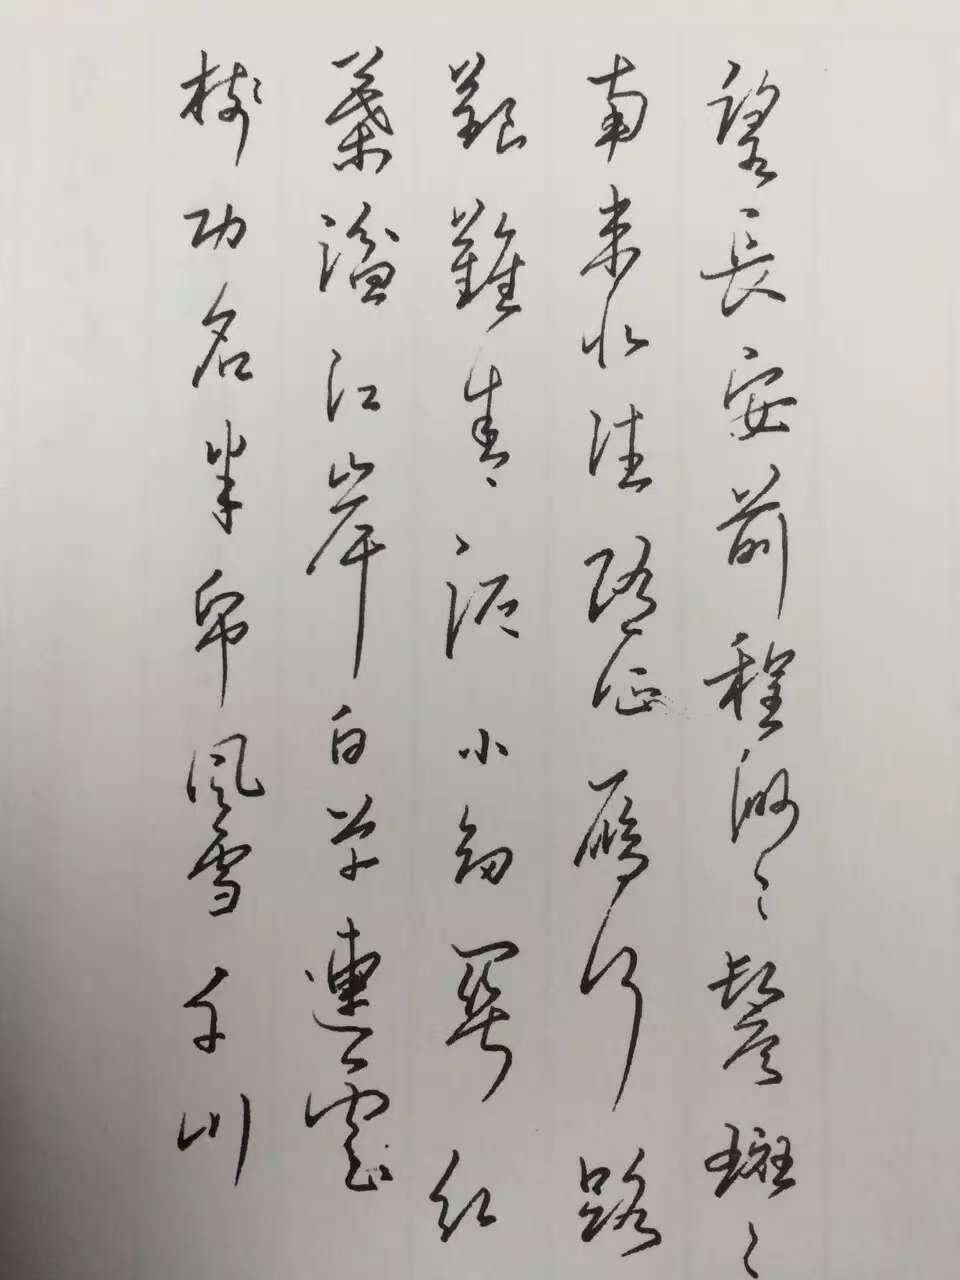 望長安前程渺〻鬢斑〻
南来北往随征雁行路
艱難青泥小劍關紅
葉湓江岸白草連雲
棧功名半帋風雪千山